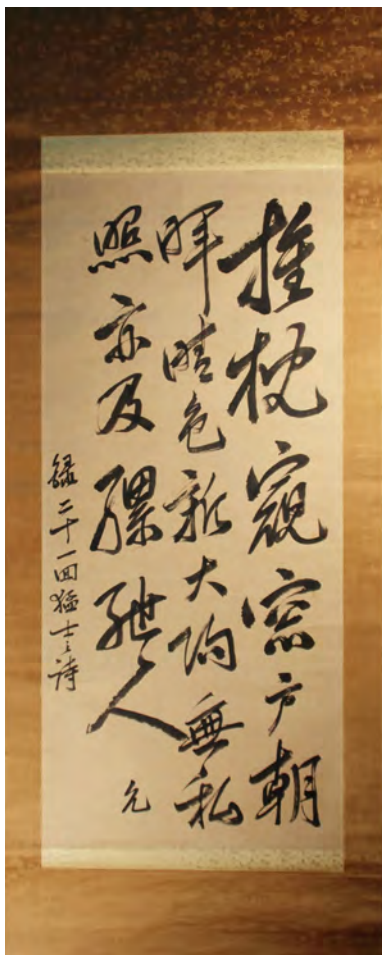 推枕窺窓戸朝
暉晴色新大陽無私
照亦及縲紲人
允
録二十一回猛士之詩